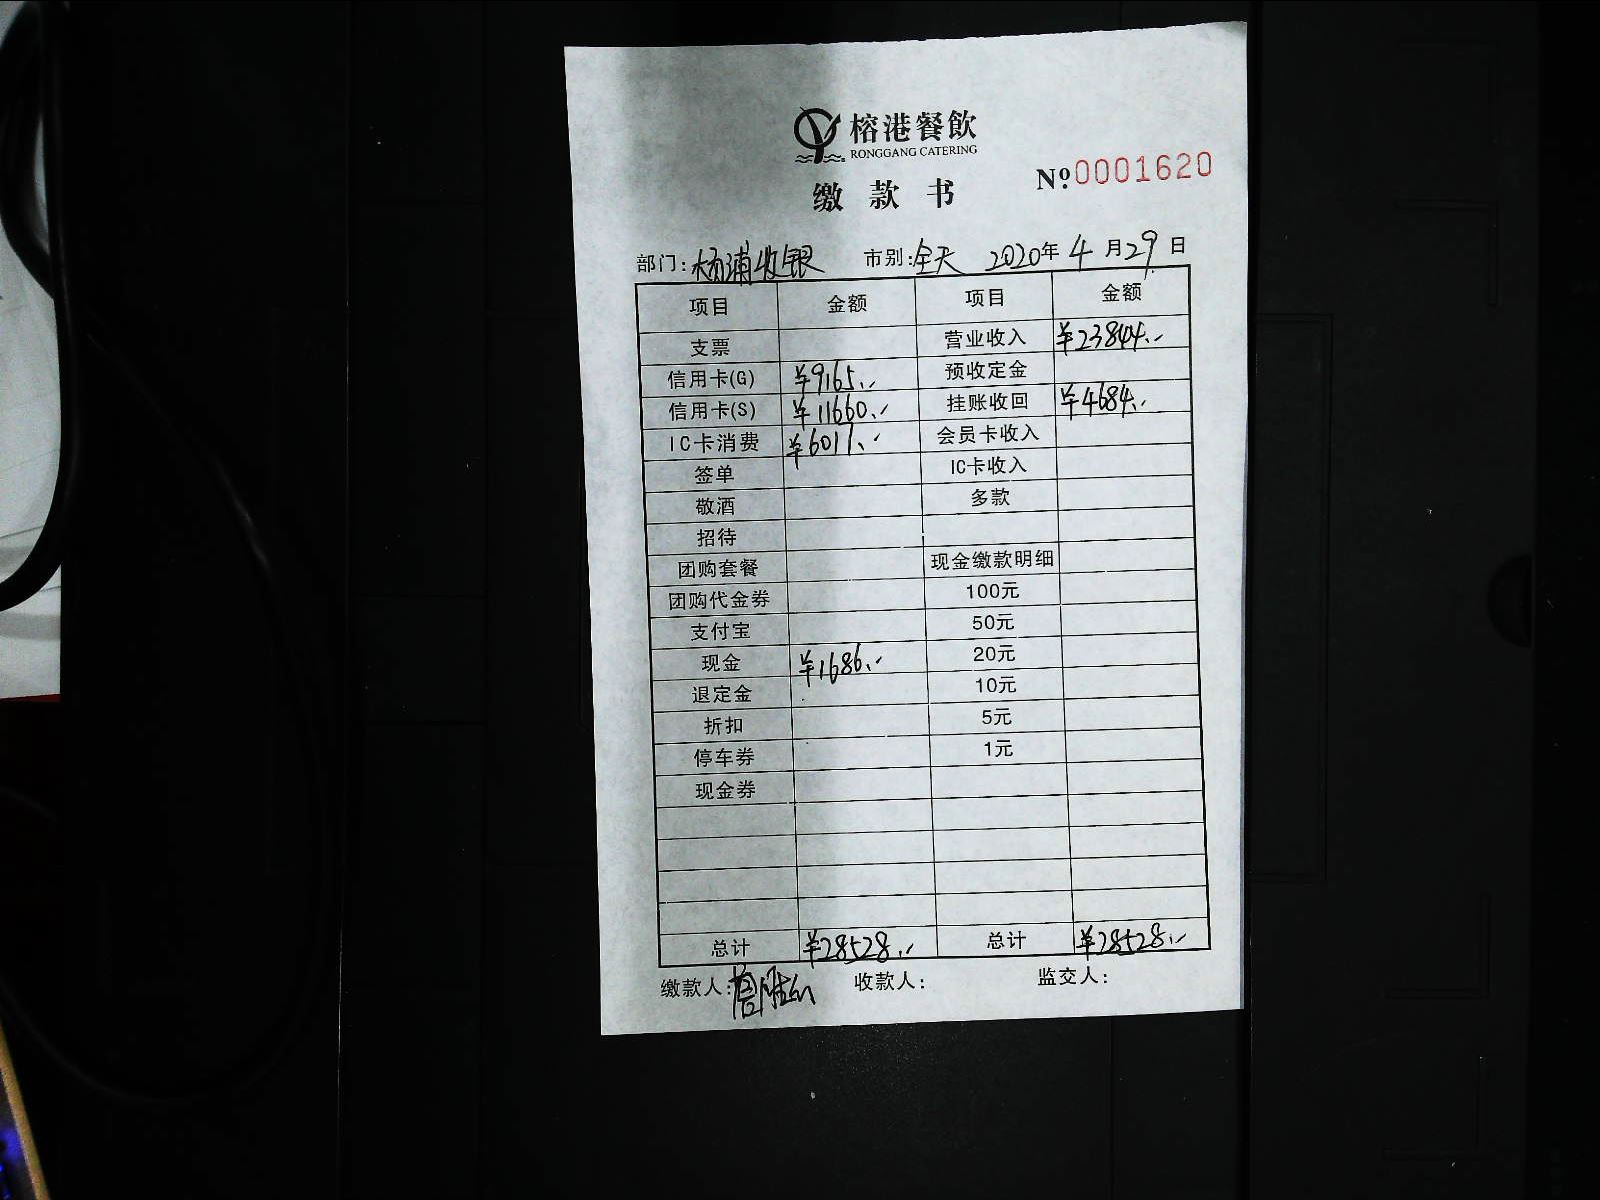 榕港餐飲
RONGGANG CATERING
缴款书
Nº:0001620
部门:杨浦收银 市别:全天 2020年4月29日
项目 金额 项目 金额
支票 营业收入 ¥23844.-
信用卡(G) ¥9165.- 预收定金
信用卡(S) ¥11660.- 挂账收回 ¥4684.-
IC卡消费 ¥6017.- 会员卡收入
签单 IC卡收入
敬酒 多款
招待
团购套餐 现金缴款明细
团购代金券 100元
支付宝 50元
现金 ¥1686.- 20元
退定金 10元
折扣 5元
停车券 1元
现金券
总计 ¥28528.- 总计 ¥28528.-
缴款人: 收款人: 监交人: